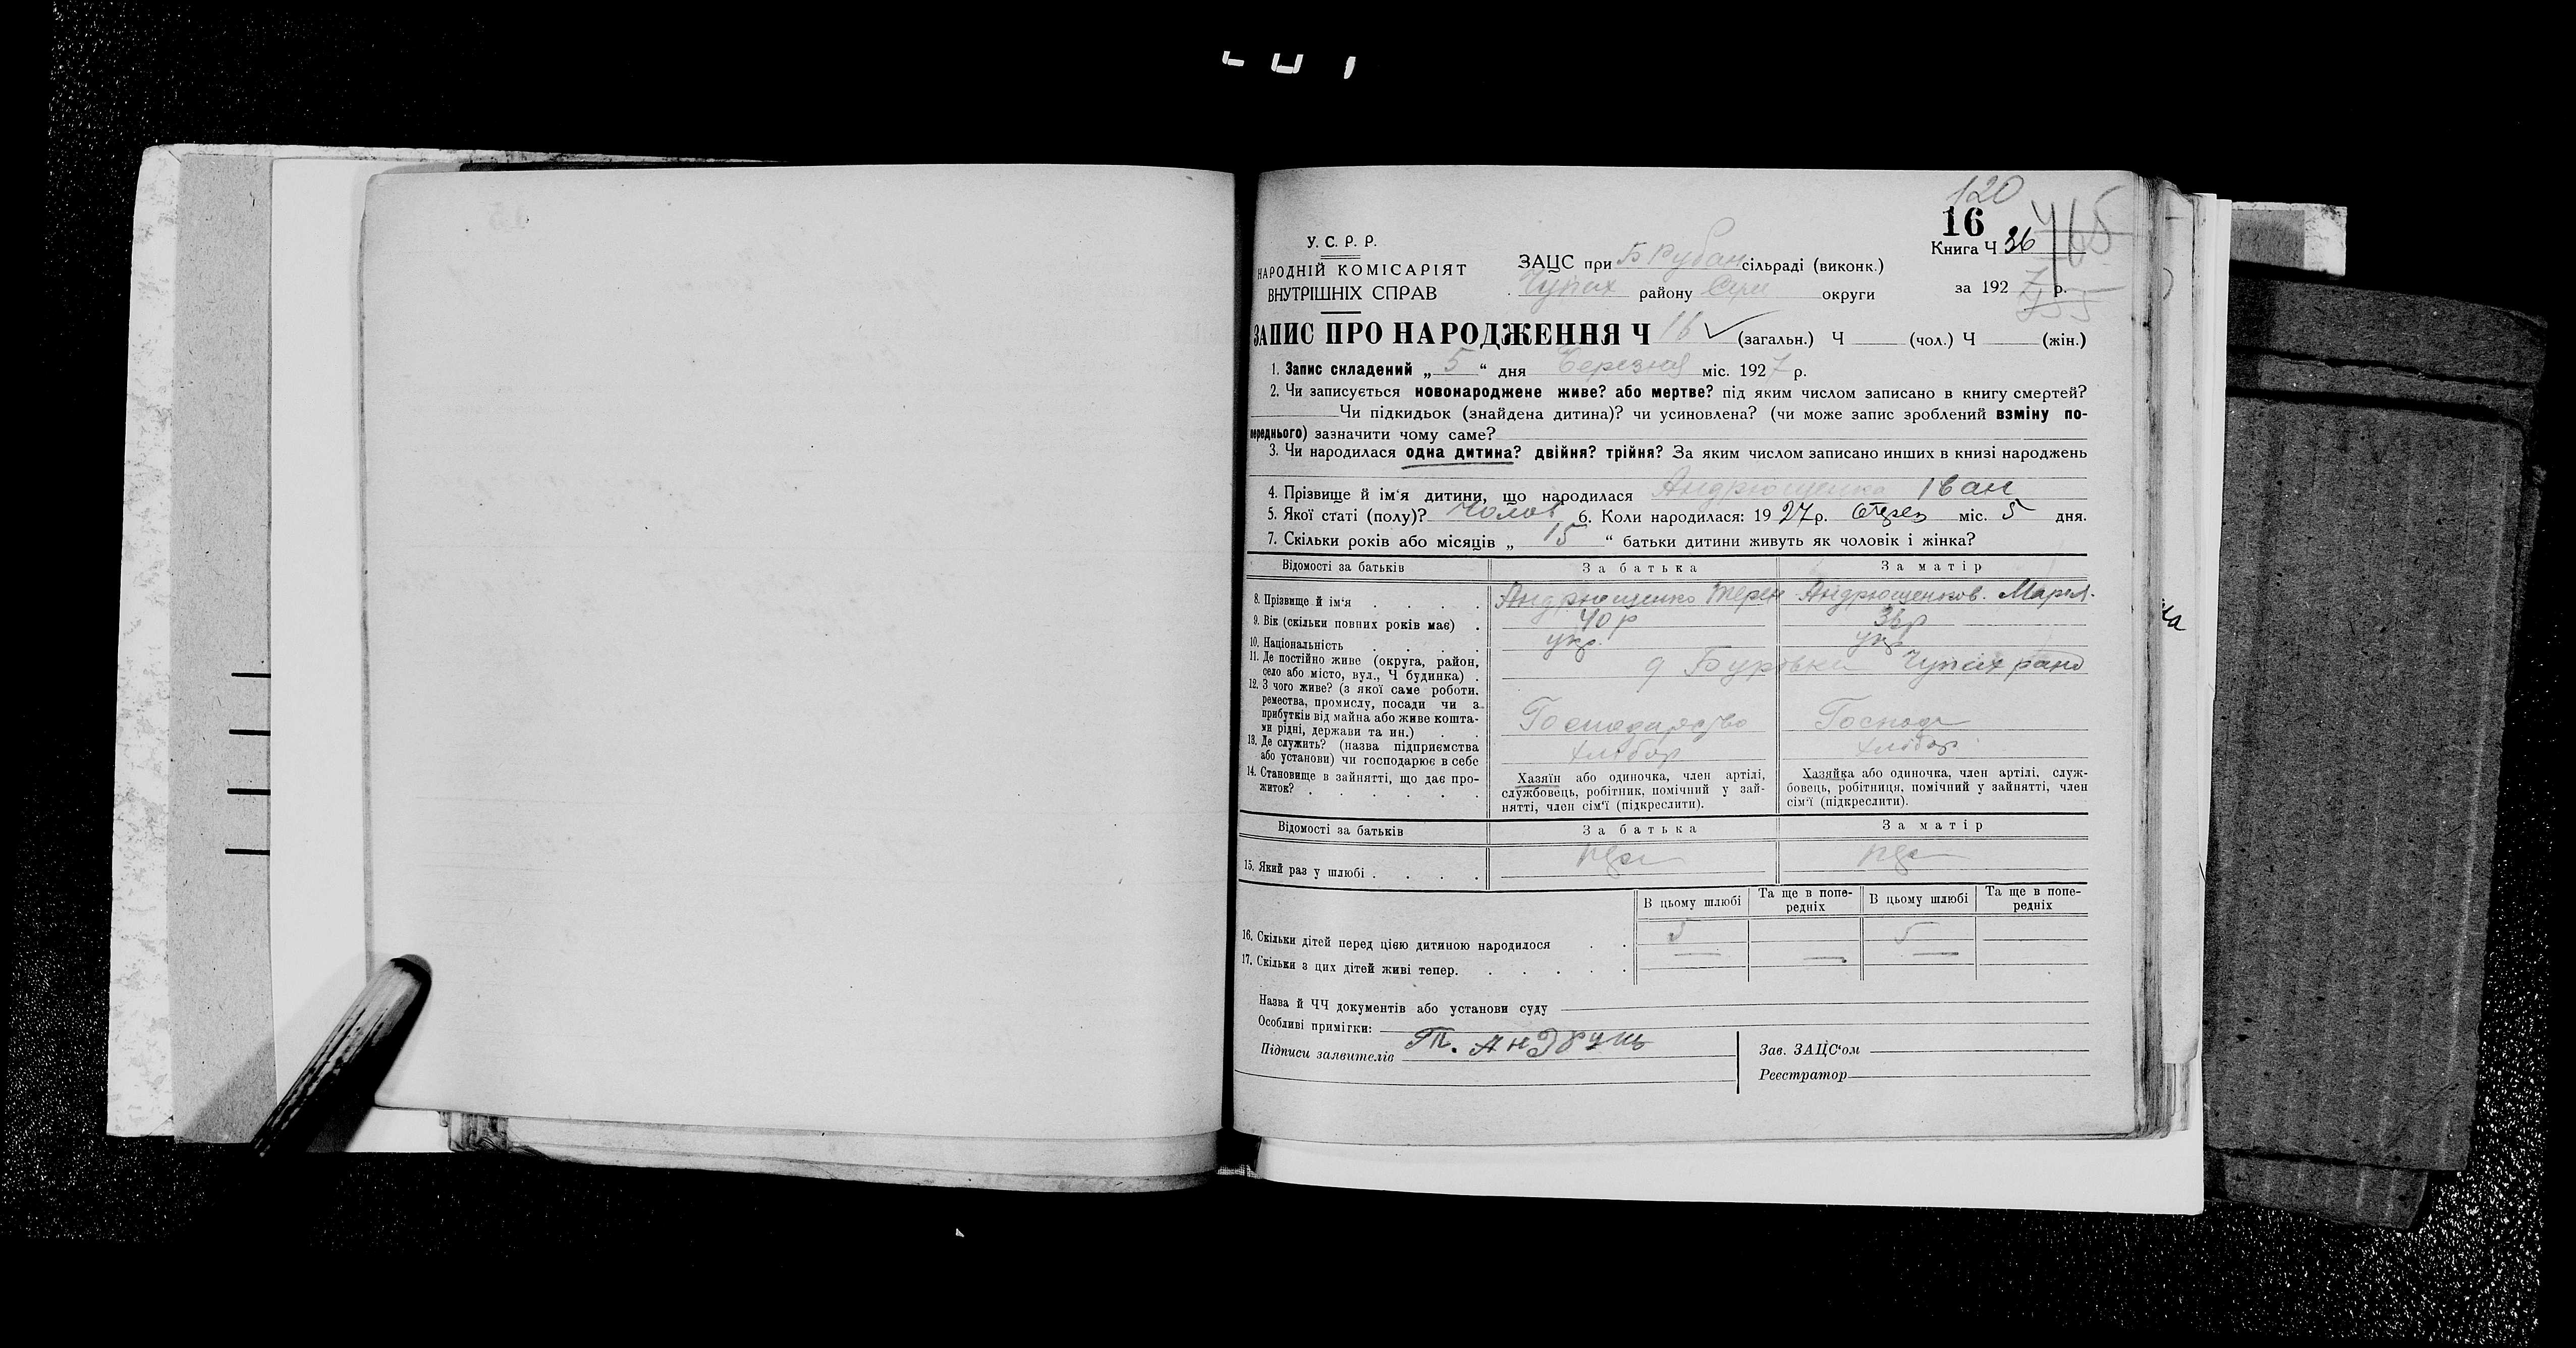 120
16
465
Книга Ч 36
У. С. Р. Р.
НАРОДНІЙ КОМІСАРІЯТ
ВНУТРІШНІХ СПРАВ
ЗАЦС при Б Рубан сільраді (виконк.)
Чупах району Сум округи
за 192 7 р.
ЗАПИС ПРО НАРОДЖЕННЯ Ч 16 (загальн.) Ч (чол.) Ч (жін.)
1. Запис складений „ 5 “ дня Березня міс. 1927 р.
2. Чи записується новонароджене живе? або мертве? під яким числом записано в книгу смертей?
Чи підкидьок (знайдена дитина)? чи усиновлена? (чи може запис зроблений взміну по-
переднього) зазначити чому саме?
3. Чи народилася одна дитина? двійня? трійня? За яким числом записано инших в книзі народжень
4. Прізвище й ім‘я дитини, що народилася Андрющенко Іван
5. Якої статі (полу)? Чолов 6. Коли народилася: 19 27 р. міс. 5 дня.
7. Скільки років або місяців „ 15 “ батьки дитини живуть як чоловік і жінка?
Відомості за батьків За батька За матір
8. Прізвище й ім‘я . . . . Андрющенко Терен Андрющенков. Мария.
9. Вік (скільки повних років має) . 40 р 36 р
10. Національність . . . . укр. укр
11. Де постійно живе (округа, район,
село або місто, вул., Ч будинка) . Буровка Чупах раио
12. З чого живе? (з якої саме роботи,
ремества, промислу, посади чи з
прибутків від майна або живе кошта-
ми рідні, держави та ин.) . . Господарство Господ
13. Де служить? (назва підприємства
або установи) чи господарює в себе хлібор хлібор
14. Становище в зайнятті, що дає про-
житок? . . . . . .
Хазяїн або одиночка, член артілі,
службовець, робітник, помічний у зай-
нятті, член сім‘ї (підкреслити).
Хазяйка або одиночка, член артілі, служ-
бовець, робітниця, помічний у зайнятті, член
сім‘ї (підкреслити).
Відомості за батьків За батька За матір
15. Який раз у шлюбі . . . .
В цьому шлюбі Та ще в попе-
редніх В цьому шлюбі Та ще в попе-
редніх
16. Скільки дітей перед цією дитиною народилося . . 5 5
17. Скільки з цих дітей живі тепер. . . . . . — — —
Назва й ЧЧ документів або установи суду
Особливі примітки:
Підписи заявителів
Зав. ЗАЦС‘ом
Реєстратор